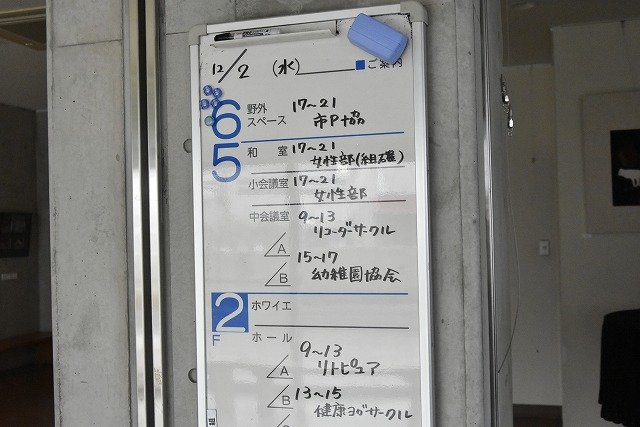 12/2 (水) ■ご案内
6 野外スペース 17〜21
市P協
5 和室 17〜21
女性部(組確)
小会議室 17〜21
女性部
中会議室 9〜13
リコーダーサークル
A 15〜17
B 幼稚園協会
2F ホワイエ
ホール 9〜13
A リトピュア
B 13〜15
健康ヨガサークル